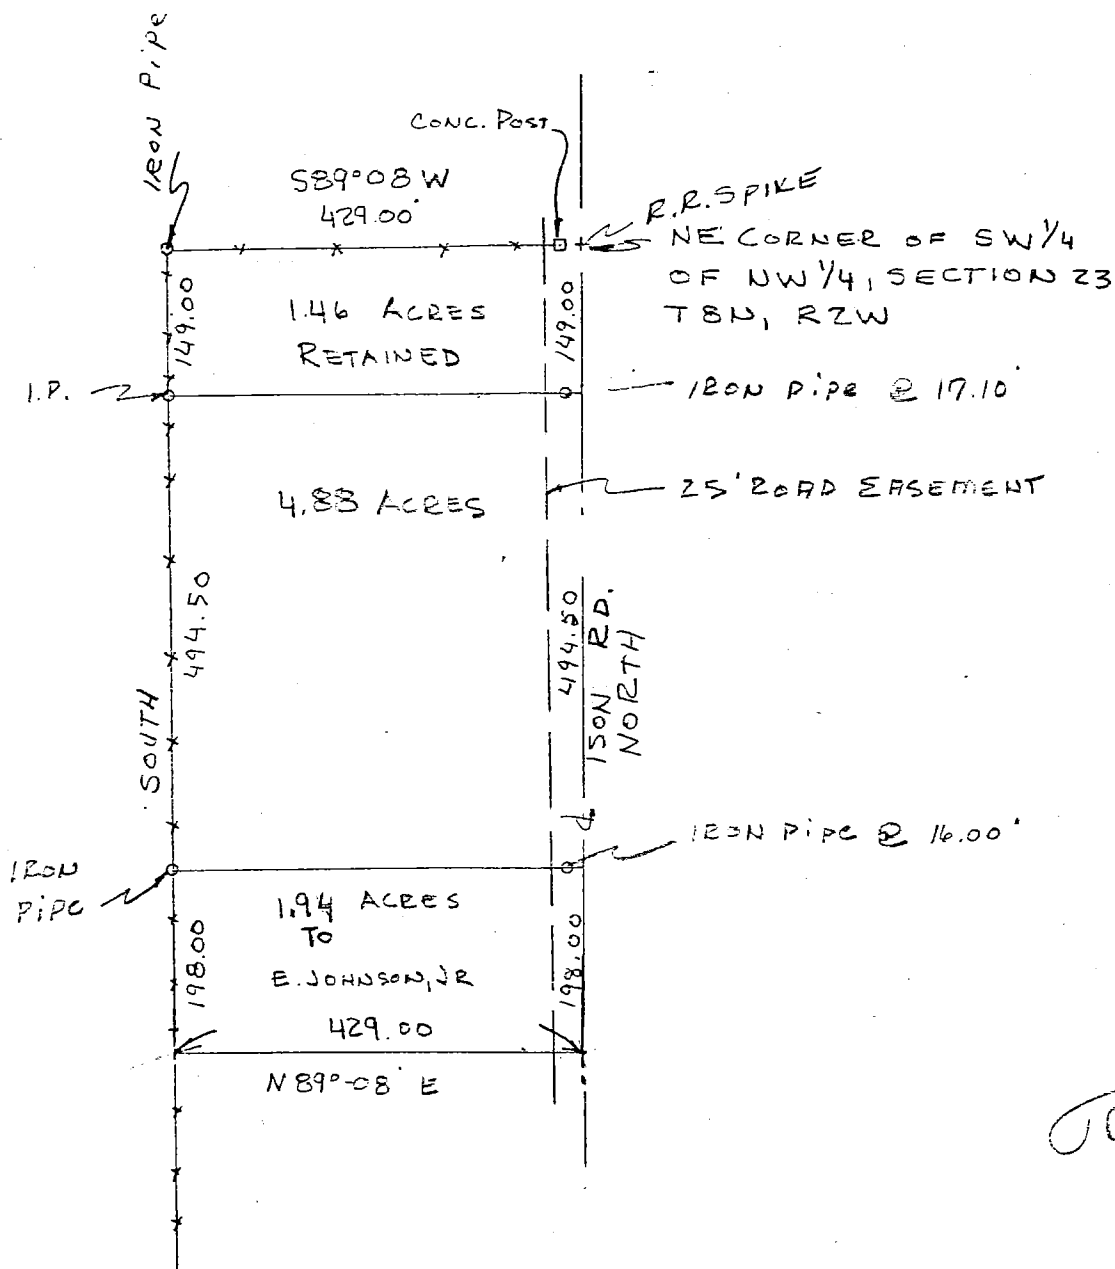 IRON PIPE
CONC. POST
S89°08 W
429.00'
R.R. SPIKE
NE CORNER OF SW 1/4
OF NW 1/4, SECTION 23
T8N, R2W
149.00
1.46 ACRES
RETAINED
149.00
I.P.
IRON PIPE @ 17.10'
4.88 ACRES
25' ROAD EASEMENT
494.50
494.50
ISON RD.
NORTH
SOUTH
IRON PIPE @ 16.00'
IRON
PIPE
1.94 ACRES
TO
E. JOHNSON, JR
198.00
198.00
429.00
N 89°-08' E